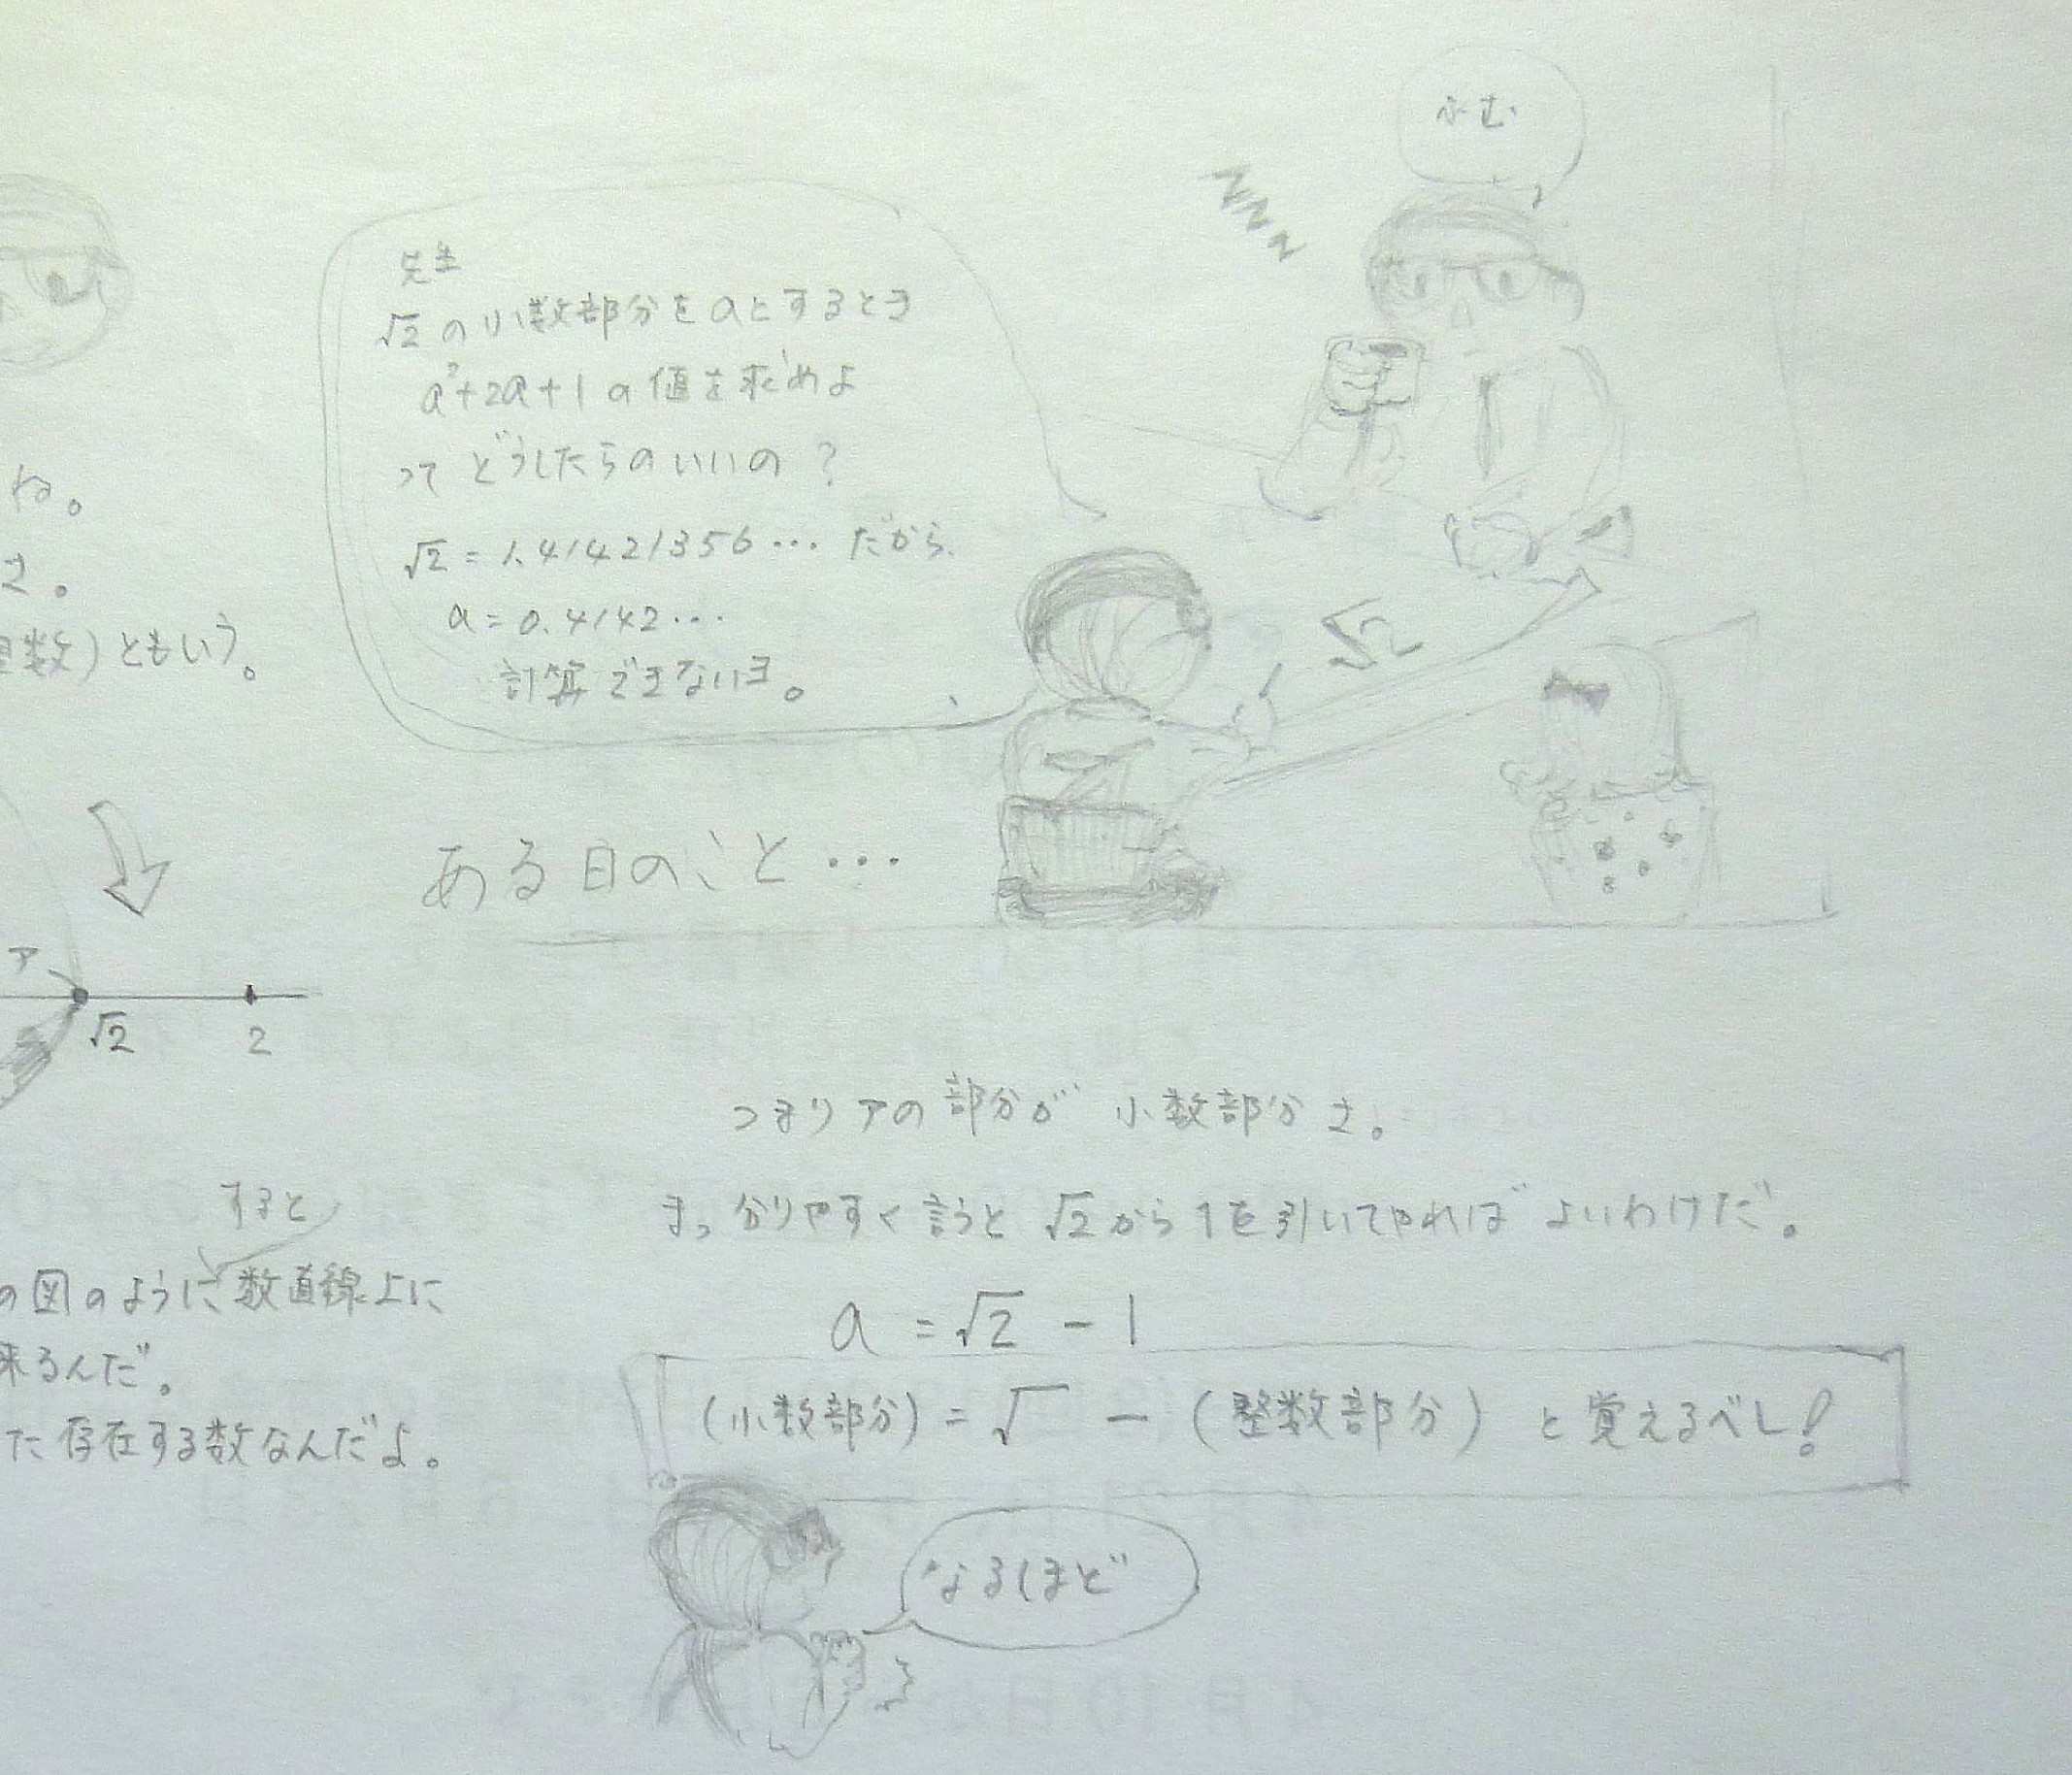 ふむ
先生
√2の小数部分をaとするとき
a²+2a+1の値を求めよ
って どうしたらのいいの?
√2=1.41421356… だから
a=0.4142…
計算できないヨ。
ね。
さ。
数)ともいう。
√2
ある日のこと…
ア
√2 2
つまりアの部分が 小数部分さ。
まっ 分りやすく言うと √2から1を引いてやれば よいわけだ。
a=√2-1
(小数部分)=√ -(整数部分) と覚えるべし!
なるほど
すると
の図のように数直線上に
来るんだ。
た存在する数なんだよ。